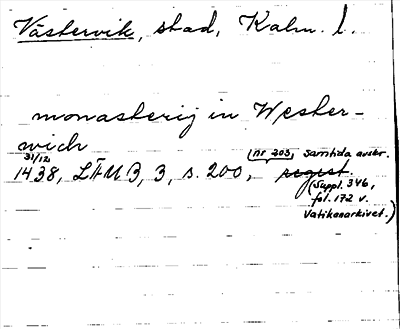 Västervik, stad, Kalm. l.
monasterij in Wester-
wich
31/12
1438, LÄUB, 3, s. 200, (nr 203, samtida avskr.
regest.
(Suppl. 346,
fol. 172 v.
Vatikanarkivet.)